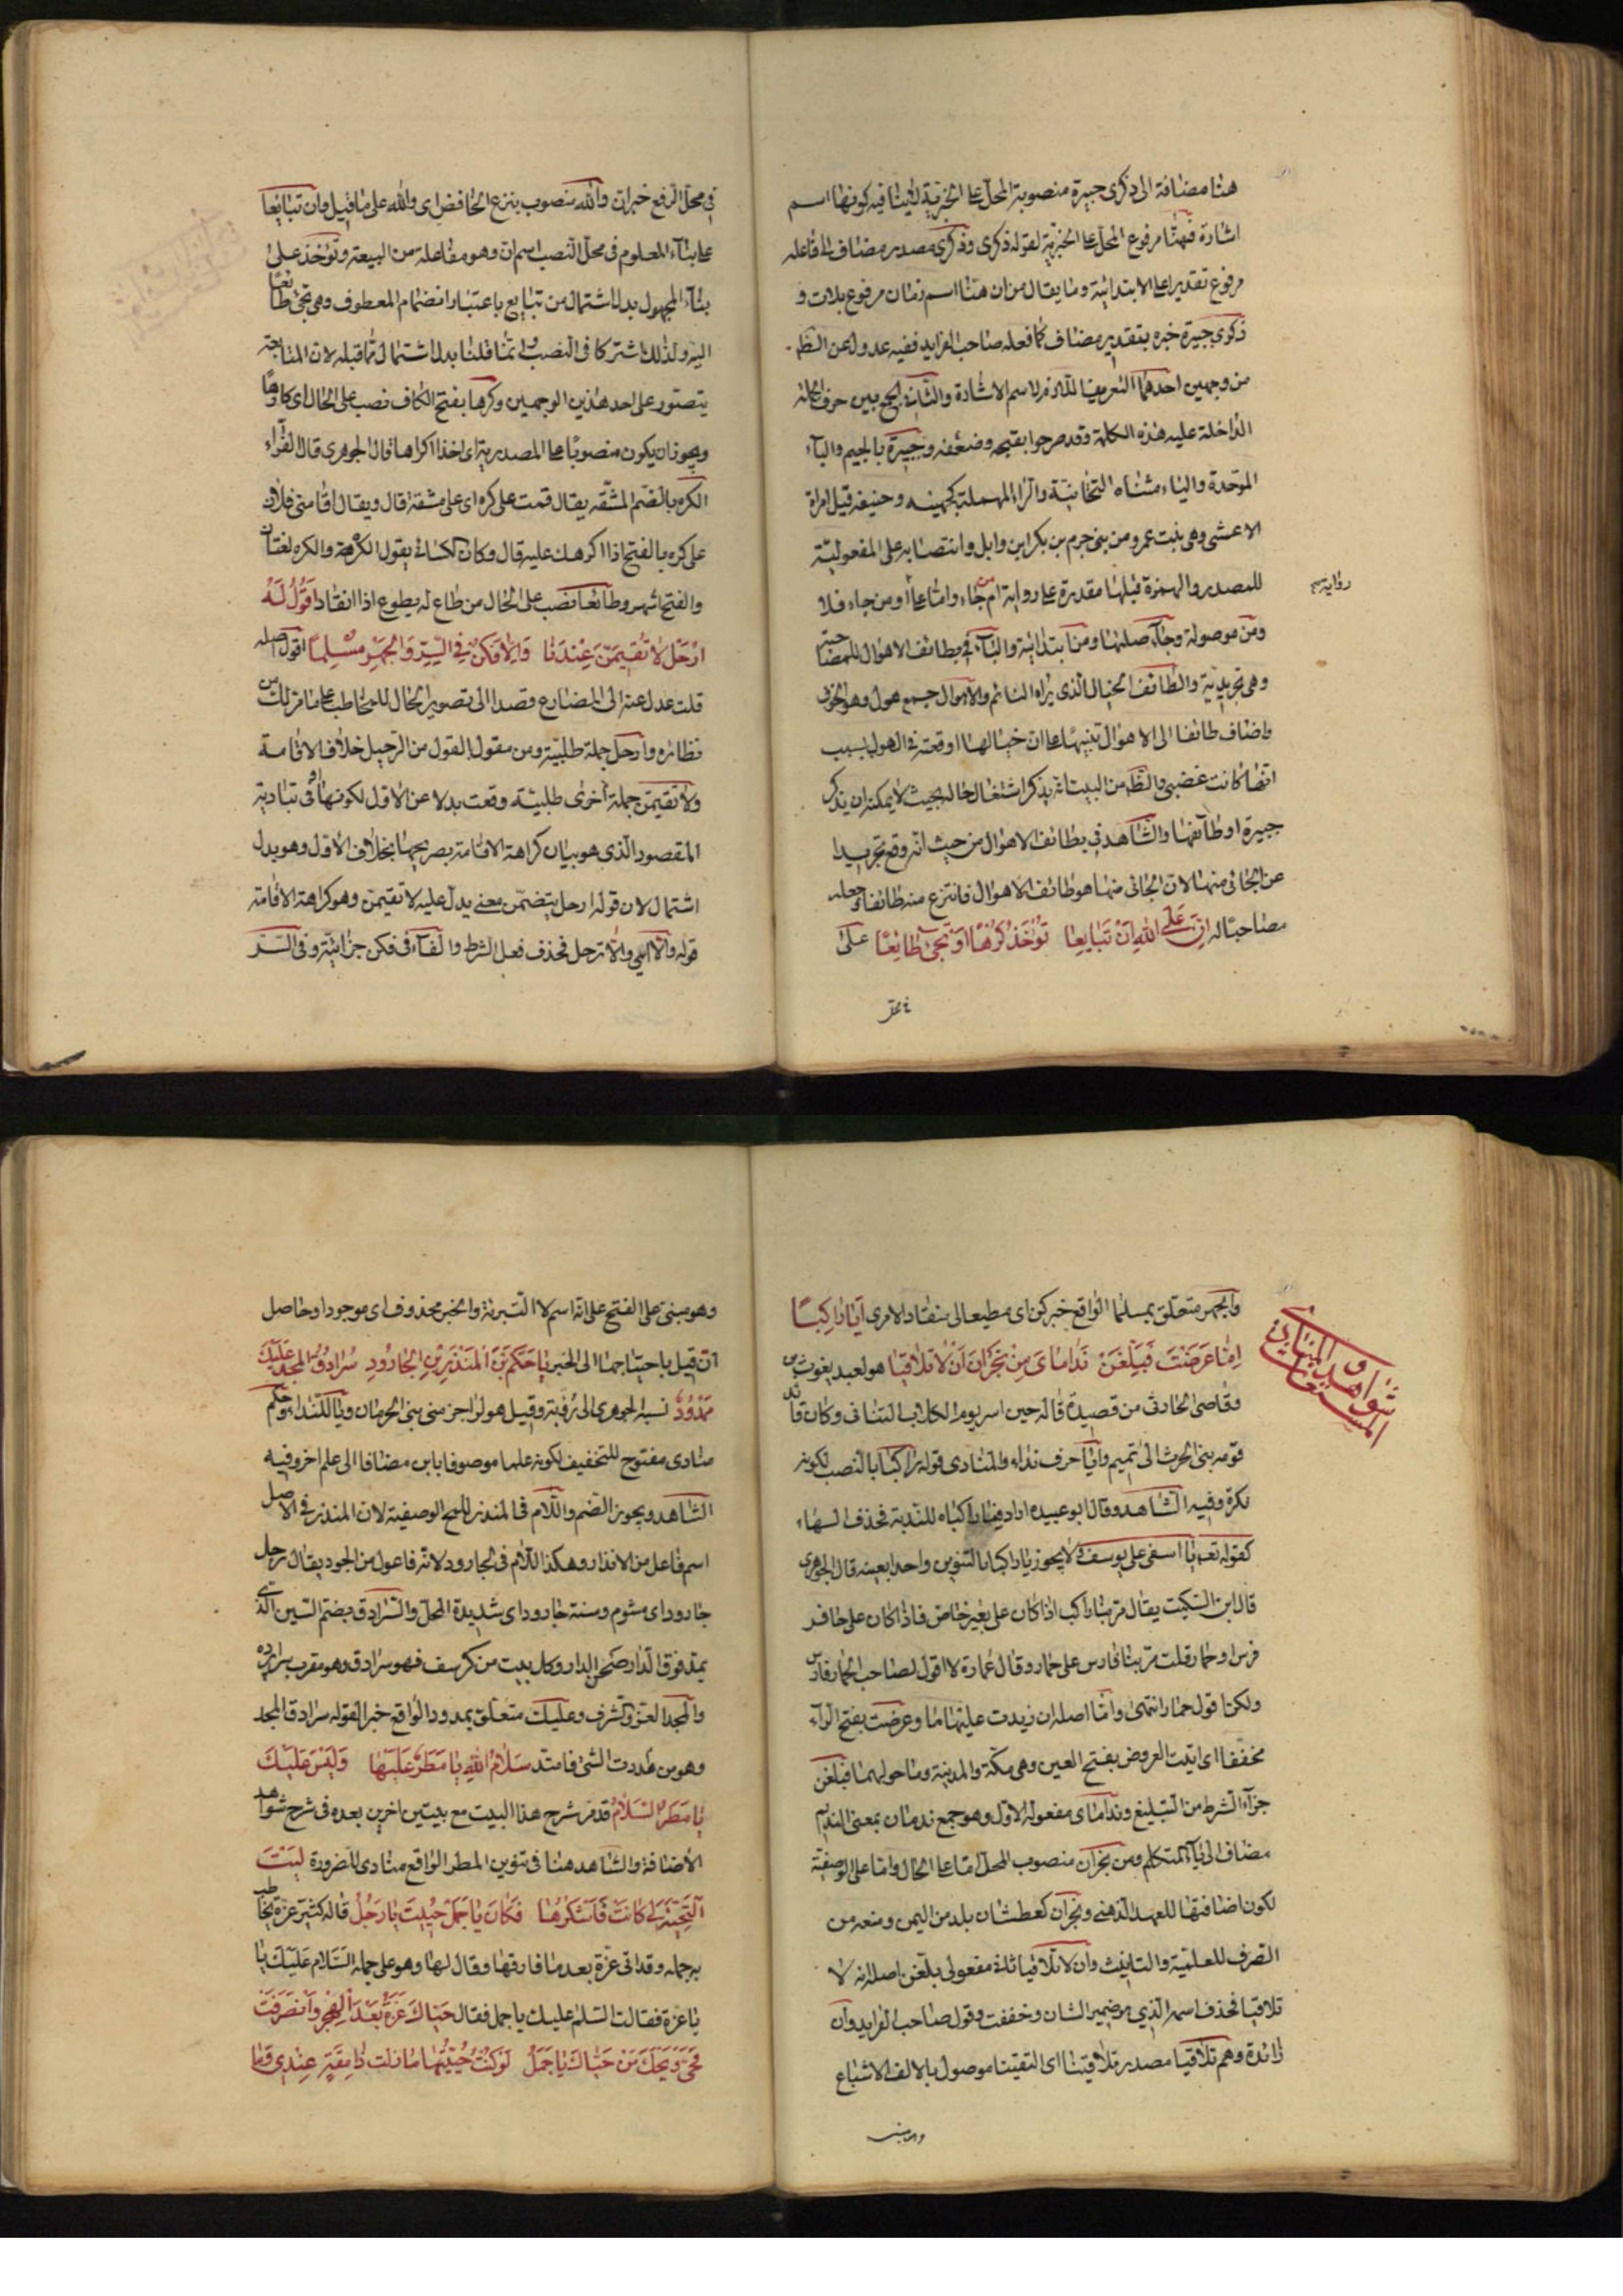 هنا مضافة الى ذكرى جبيرة منصوبة المحل على الخبرية لاينافيه كونها اسم
اشارة فهنا مرفوع المحل على الخبرية لقوله ذكرى وذكرى مصدر مضاف الى فاعله
مرفوع تقديرا على الابتدائية وما يقال من ان هنا اسم زمان مرفوع بلات و
ذكرى جبيرة خبره بتقدير مضاف كما فعله صاحب الفرايد ففيه عدول عن الظ
من وجهين احدهما التعريف اللازم لاسم الاشارة والثاني الجمع بين
الداخلة عليه هذه الكلمة وقد صرحوا بقبحه وضعفه وجبيرة بالجيم والباء
الموحدة والياء مثناه التحتانية والراء المهملة كجهينه وحنيفه قيل امراة
الاعشى وهى بنت عمرو من بنى حرم بن بكر ابن وايل وانتصابه على المفعولية
للمصدر والهمزة قبلها مقدرة على رواية ام من جاء واما على أو من جاء فلا
روايته
ومن موصولة وجاء صلتها ومن ابتدائية والباء في بطائف الاهوال للمصاحبة
وهى تجريدية والطائف الخيال الذى يراه النائم والاهوال جمع هول وهو الخوف
واضاف طائفا الى الاهوال تنبيها على ان خيالها اوقعته في الهول بسبب
انها كانت غضبى والظ من البيت انه يذكر اشتغال خاله بحيث لا يمكنه ان يذكر
جبيرة او طائفها والشاهد في بطائف الاهوال من حيث انه وقع تجريدا
عن الجائى منها لان الجائى منها هو طائف الاهوال فانتزع منه طائفا وجعله
مصاحبا له ان على الله ان تبايعا تؤخذ كرها او تجئ طائعا على
في محل
في محل الرفع خبر ان والله منصوب بنزع الخافض اى والله على ما قيل وان تبايعا
على بناء المعلوم في محل النصب اسم ان وهو مفاعلة من البيعة وتؤخذ على
بناء المجهول بدل اشتمال من تبايع باعتبار انضمام المعطوف وهى تجئ طائعا
اليه ولذلك اشتركا فى النصب وانما قلنا بدل اشتمال مما قبله لان المتابعة
يتصور على احد هذين الوجهين وكرها بفتح الكاف نصب على الحال اى كارها
ويجوز ان يكون منصوبا على المصدرية اى اخذا اكراها قال الجوهرى قال الفراء
الكره بالضم المشقة يقال قمت على كره اى على مشقة قال ويقال اقامنى فلان
على كره بالفتح اذا اكرهك عليه قال وكان الكسائى يقول الكره والكره لغتان
والفتح اشهر وطائعا نصب على الحال من طاع له يطوع اذا انقاد اقول له
ارحل لا تقيمن عندنا والا فكن في السر والجهر مسلما اقول اصله
قلت عدل عنه الى المضارع قصدا الى تصوير الحال للمخاطب على ما مر لك من
نظائره وارحل جملة طلبية ومن مقول القول من الرحيل خلاف الاقامة
ولا تقيمن جملة اخرى طلبية وقعت بدلا عن الاول لكونها اوفى بتادية
المقصود الذى هو بيان كراهة الاقامة بصريحها بخلاف الاول وهو بدل
اشتمال لان قوله ارحل يتضمن معنى يدل عليه لا تقيمن وهو كراهة الاقامة
قوله والا اى والا ترحل فحذف فعل الشرط والفاء في فكن جزائية وفى السر
والجهر متعلق بمسلما الواقع خبر كن اى مطيعا لى منقادا لامرى ايا راكبا
شواهد المنادى
اما عرضت فبلغن نداماى من نجران ان لا تلاقيا هو لعبد يغوث بن
وقاصى الحارث من قصيدة قاله حين اسر يوم الكلاب الثانى وكان قائد
قومه بنى الحرث الى تميم وايا حرف نداء والمنادى قوله راكبا بالنصب لكونه
نكرة وفيه الشاهد وقال ابو عبيده اراد فيا راكباه للندبة فحذف الهاء
كقوله تعه يا اسفى على يوسف ولا يجوز يا راكبا بالتنوين واحدا بعينه قال الجوهرى
قال ابن السكيت يقال مر بنا راكب اذا كان على بعير خاص فاذا كان على حافر
فرس او حمار قلت مر بنا فارس على حمار وقال عمارة لا اقول لصاحب الحمار فارس
ولكن اقول حمار انتهى واما اصله ان زيدت عليها ما وعرضت بفتح الراء
مخففا اى اتيت العروض بفتح العين وهى مكة والمدينة وما حولهما فبلغن
جزاء الشرط من التبليغ ونداماى مفعوله الاول وهو جمع ندمان بمعنى النديم
مضاف الى ياء المتكلم ومن نجران منصوب المحل اما على الحال واما على الوصفية
لكون اضافتها للعهد الذهنى ونجران كعطشان بلد من اليمن ومنعه من
الصرف للعلمية والتانيث وان لا تلاقيا ثانى مفعولى بلغن اصله انه لا
تلاقيا فحذف اسمه الذى هو ضمير الشان وخففت وقول صاحب الفرايد وان
زائدة وهم تلاقيا مصدر تلاقينا اى التقينا موصول بالالف الاشباع
وهو مبنى
وهو مبنى على الفتح على انه اسم لا التبرئة والخبر محذوف اى موجود او حاصل
ان قيل باحتياجها الى الخبر يا حكم بن المنذر بن الجارود سرادق المجد عليك
ممدود نسبه الجوهرى الى رؤبة وقيل هو لراجز من بنى الحرمان ويا للنداء وحكم
منادى مفتوح للتخفيف لكونه علما موصوفا بابن مضافا الى علم اخر وفيه
الشاهد ويجوز الضم واللام فى المنذر للمح الوصفية لان المنذر في الاصل
اسم فاعل من الانذار وهكذا اللام فى الجارود لانه فاعول من الجود يقال رجل
جارود اى مشوم وسنة جارود اى شديدة المحل والسرادق بضم السين الذى
يمد فوق الدار صحن الدار وكل بيت من كرسف فهو سرادق وهو معرب سراپرده
والمجد العز والشرف وعليك متعلق بممدود الواقع خبرا لقوله سرادق المجد
وهو من مددت الشئ فامتد سلام الله يا مطر عليها وليس عليك
يا مطر السلام قد مر شرح هذا البيت مع بيتين اخرين بعده فى شرح شواهد
الاضافة والشاهد هنا فى تنوين المطر الواقع منادى للضرورة ليت
التحية لى كانت فاشكرها فكان يا جمل حييت يا رجل قاله كثير عزة يخاطب
به جمله وقد اتى عزة بعد ما فارقها وقال لها وهو على جمله السلام عليك يا
يا عزة فقالت السلم عليك يا جمل فقال حياك عزة بعد الهجر وانصرفت
فحى ويحك من حياك يا جمل لو كنت حييتها ما زلت ذا مقة عندى وما